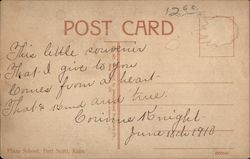 12.00
POST CARD
This little souvenir
That I give to you
Comes from a heart
That's kind and true.
Corinne Knight
June 18th 1910
Plaza School, Fort Scott, Kans.